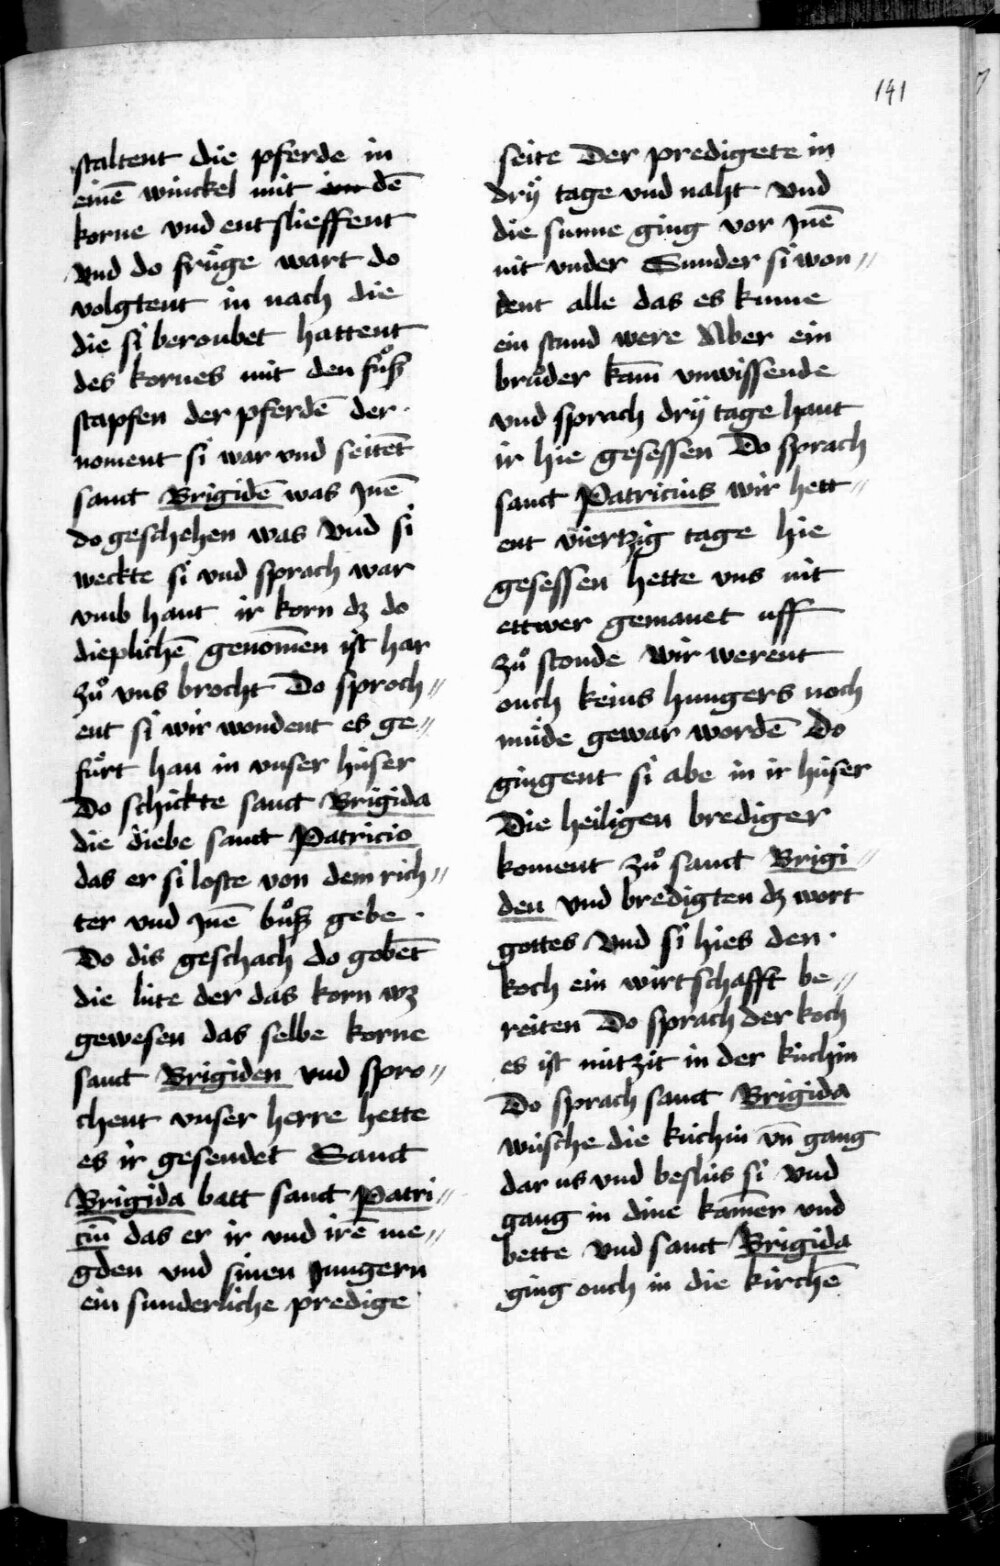 141
staltent die pferde in
einē winckel mit dē
korne vnd entslieffent
vnd do fruͤge wart do
volgtent in nach die
die si beroubet hattent
des kornes mit den fuͦß
stapfen der pferdē der
noment si war vnd seitēt
sanct Brigidē was Jnē
do geschehen was vnd si
weckte si vnd sprach war
vmb hant ir korn dz do
dieplichē genom̄en ist har
zuͦ vns brocht Do sproch〃
ent si wir wondent es ge〃
fuͤrt han in vnser húser
Do schickte sanct Brigida
die diebe sanct Patricio
das er si loste von dem rich〃
ter vnd Jnē buͦß gebe ·
Do dis geschach do gobēt
die lúte der das korn wz
gewesen das selbe korne
sanct Brigiden vnd spro〃
chent vnser herre hette
es ir gesendet Sanct
Brigida batt sanct Patri〃
ciū das er ir vnd irē me〃
gden vnd sinen Jungern
ein sunderliche predige
seite Der predigete in
drÿ tage vnd naht vnd
die sunne ging vor Jnē
nit vnder Sunder si won〃
dent alle das es kume
ein stund were Aber ein
bruͦder kam̄ vnwissende
vnd sprach drÿ tage hant
ir hie gesessen Do sprach
sanct Patricius wir hett〃
ent viertzig tage hie
gesessen hette vns nit
ettwer gemanet uff
zuͦ stonde wir werent
ouch keins hungers noch
muͤde gewar wordē Do
gingent si abe in ir húser
Die heiligen brediger
koment zuͦ sanct Brigi〃
den vnd bredigten dz wort
gottes vnd si hies den ·
koch ein wirtschafft be〃
reiten Do sprach der koch
es ist nútzit in der kúchin
Do sprach sanct Brigida
wúsche die kúchin vn̄ gang
dar us vnd beslús si vnd
gang in dine kam̄er vnd
bette vnd sanct Brigida
ging ouch in die kirchē